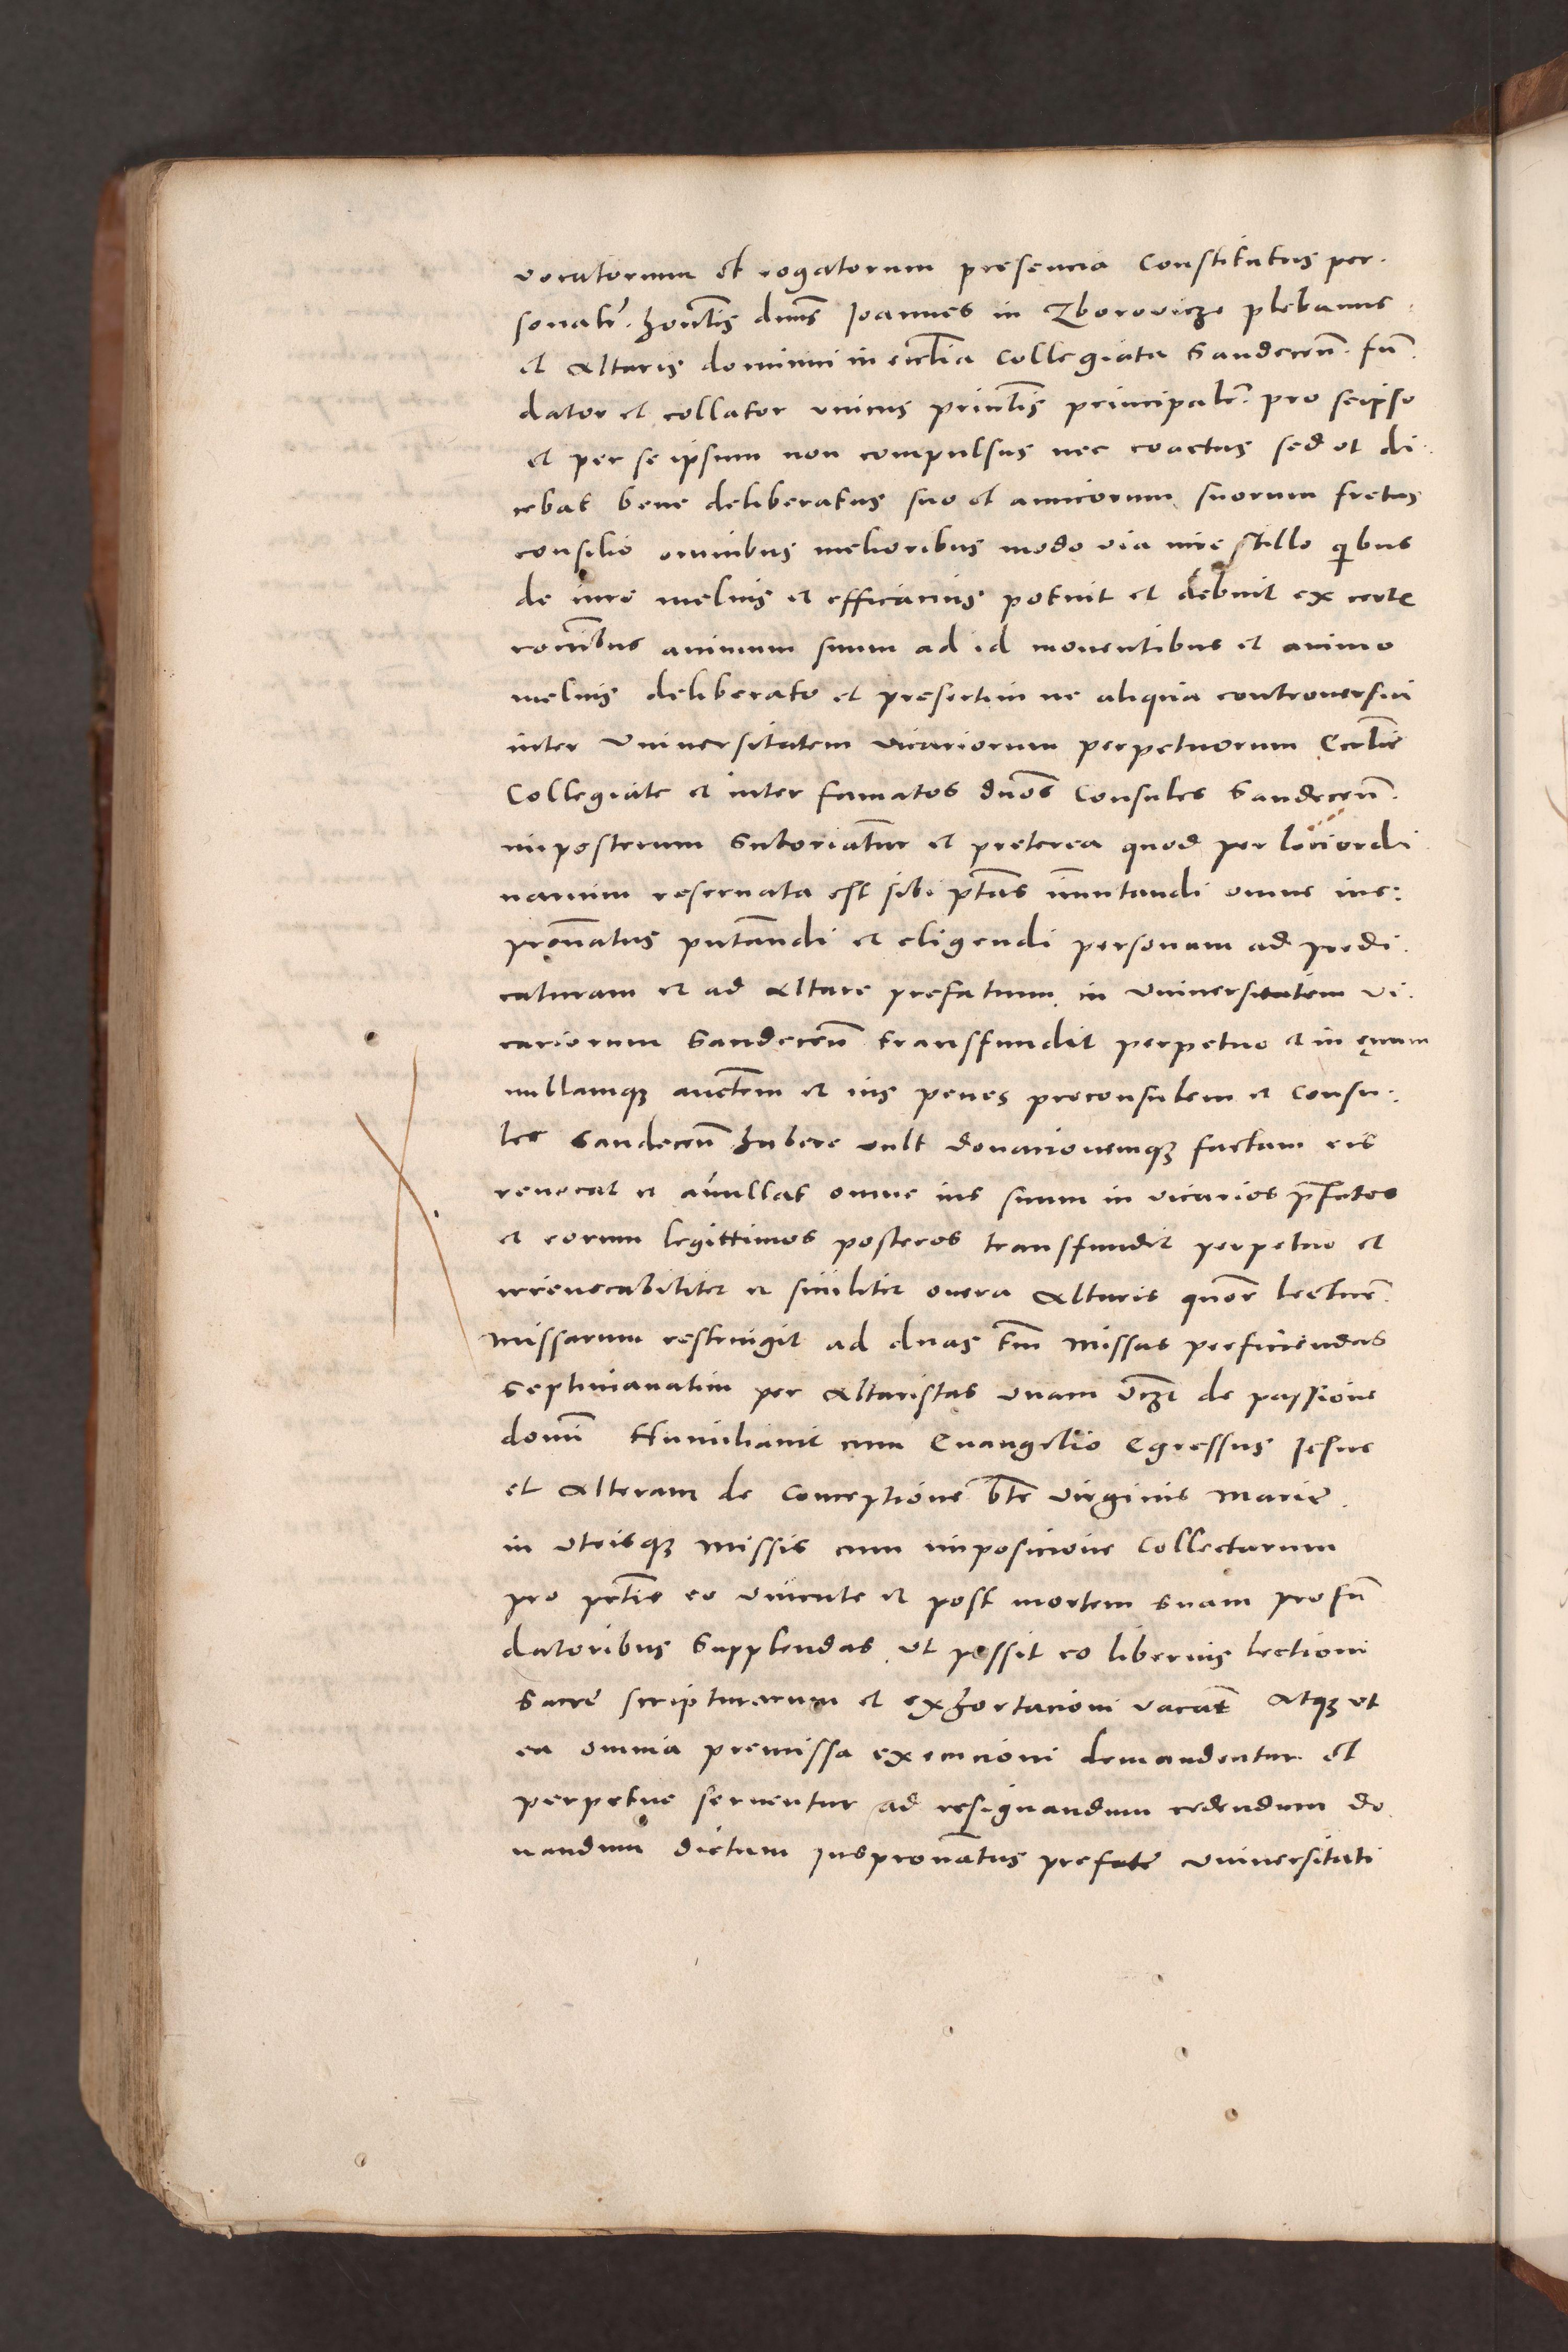 vocatorum et rogatorum presencia Constitutus per.
sonalr̃. honl̃is dñus Joannes in Zborovicze plebanus
et Altaris dominiī in eccl̃ia Collegiata Sandecen̄. fun̄
dator et collator vnicus princl̃is principalr̃. pro seipso
et per se ipsum non compulsus nec coactus sed vt di.
cebat bene deliberatus suo et amicorum suorum fretus
consilio omnibus melioribus modo via iure stillo qibus
de iure melius et efficacius potuit et debuit ex certe
rōnibus animum suum ad id moventibus et animo
melius deliberato et presertim ne aliqua controversia
inter Vniversitatem vicariorum perpetuorum Eccl̃ie
Collegiate et inter famatos dn̄os Consules Sandecen̄.
imposterum Subori͠atur et preterea quod per loci ordi
narium reservata est sibi pt̄as im̄utandi omne ius:
pron̄atus put̄andi et eligendi personam ad predi.
caturam et ad Altare prefatum in Vniversitatem vi.
cariorum Sandecen̄ transfundit perpetuo et in ęuum
nullamqʒ auct̄em et ius penes proconsulem et Consu:
les Sandecen̄ habere vult donacionemqʒ factam eis
revocat et añullat omne ius suum in vicarios p̄fatos
et eorum legittimos posteros transfundit perpetuo et
irrevocabiliter et similiter onera Altaris quōr lecture.
Missarum restringit ad duas tm̄ Missas perficiendas
Septimanatim per Altaristas vnam vꝫ de passione
domī Humiliavit cum Evangelio Egressus Jesus
et Alteram de Conceptione bt̄e Virginis Marie.
in vtrisqʒ Missis cum imposicione Collectarum
pro pct̄is eo vivente et post mortem Suam pro fun̄
datoribus Supplendas vt possit eo liberius lectioni
Sacre scripturarum et exhortacioni vacar̃ Atqʒ vt
ea omnia premissa execucioni demandentur et
perpetue serventur ad resignandum cedendum do
nandum dictum Juspron̄atus prefate Vniversitati